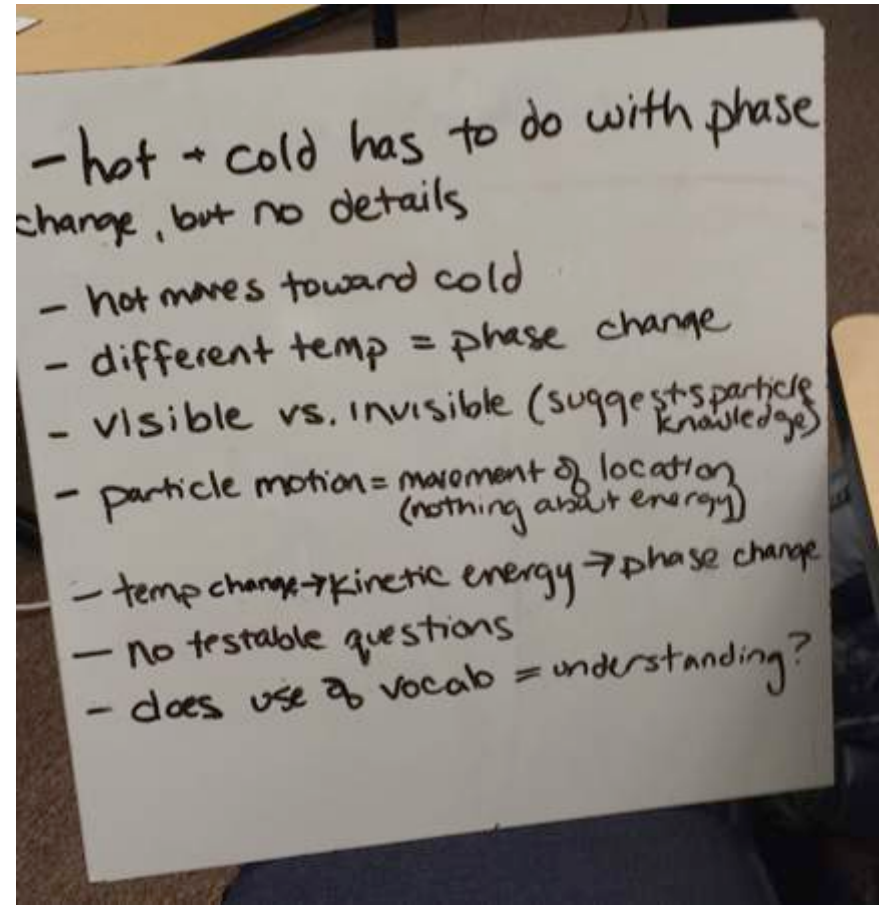 - hot + cold has to do with phase
change, but no details
- hot moves toward cold
- different temp = phase change
- visible vs. invisible (suggests particle
knowledge)
- particle motion = movement of location
(nothing about energy)
- temp change → kinetic energy → phase change
- no testable questions
- does use of vocab = understanding?